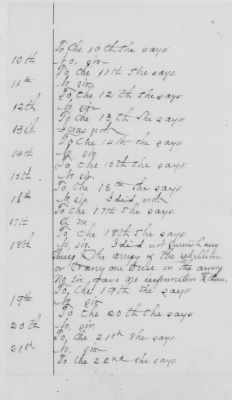 To the 10th she says
10th No, sir
To the 11th she says
11th No sir
To, the 12th she says
12th No sir
To the 13th she says
13th I was not
To the 14th she says
14th No, sir
To the 15th she says
15th No sir.
To the 16th she says
16th No sir. I did not
To the 17th she says
17th No
To the 18th she says
18th No, sir. I did not furnish any
to the army of the rebellion
or to any one else in the army
No sir, gave no information to them
To, the 19th she says
19th No sir
To the 20th she says
20th No, sir.
To, the 21st she says
21st No, sir
To the 22nd she says